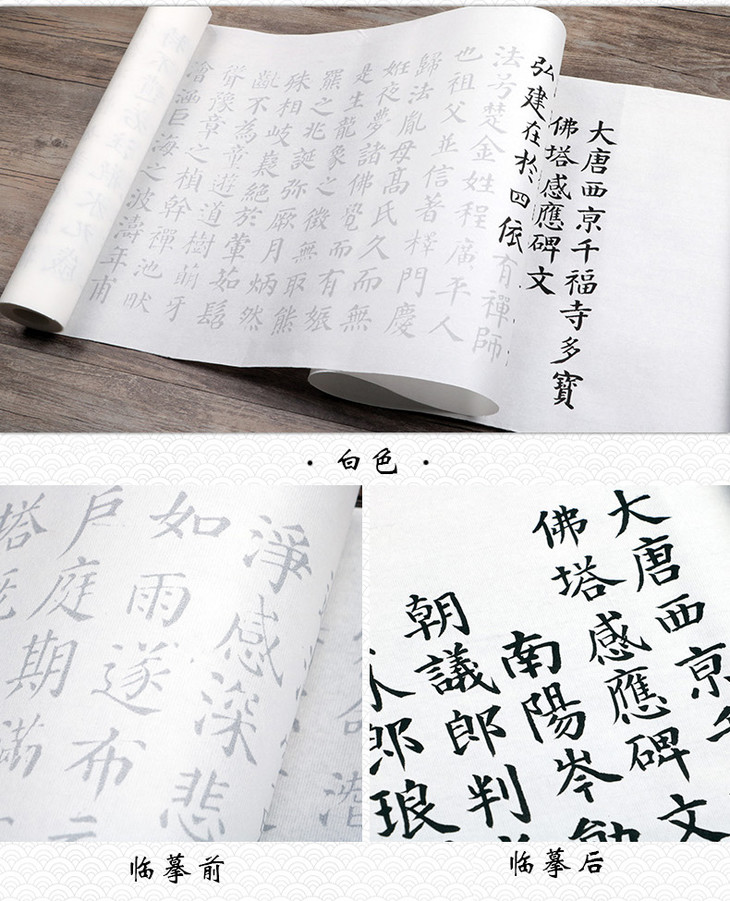 大唐西京千福寺多寶
佛塔感應碑文
弘建在於四依有禪師
法号楚金姓程廣平人
也祖父並信著釋門慶
歸法胤母高氏久而無
妊夜夢諸佛覺而有娠
是生龍象之徵無取熊
羆之兆誕弥厥月炳然
殊相岐嶷絕於葷茹髫
齓不為童遊道樹萌牙
聳豫章之楨幹禪池畎
澮涵巨海之波濤年甫
· 白色 ·
淨感深悲
如雨遂布
戶庭期滿
塔
大唐西京千
佛塔感應碑文
南陽岑勛
朝議郎判
郎琅
临摹前
临摹后